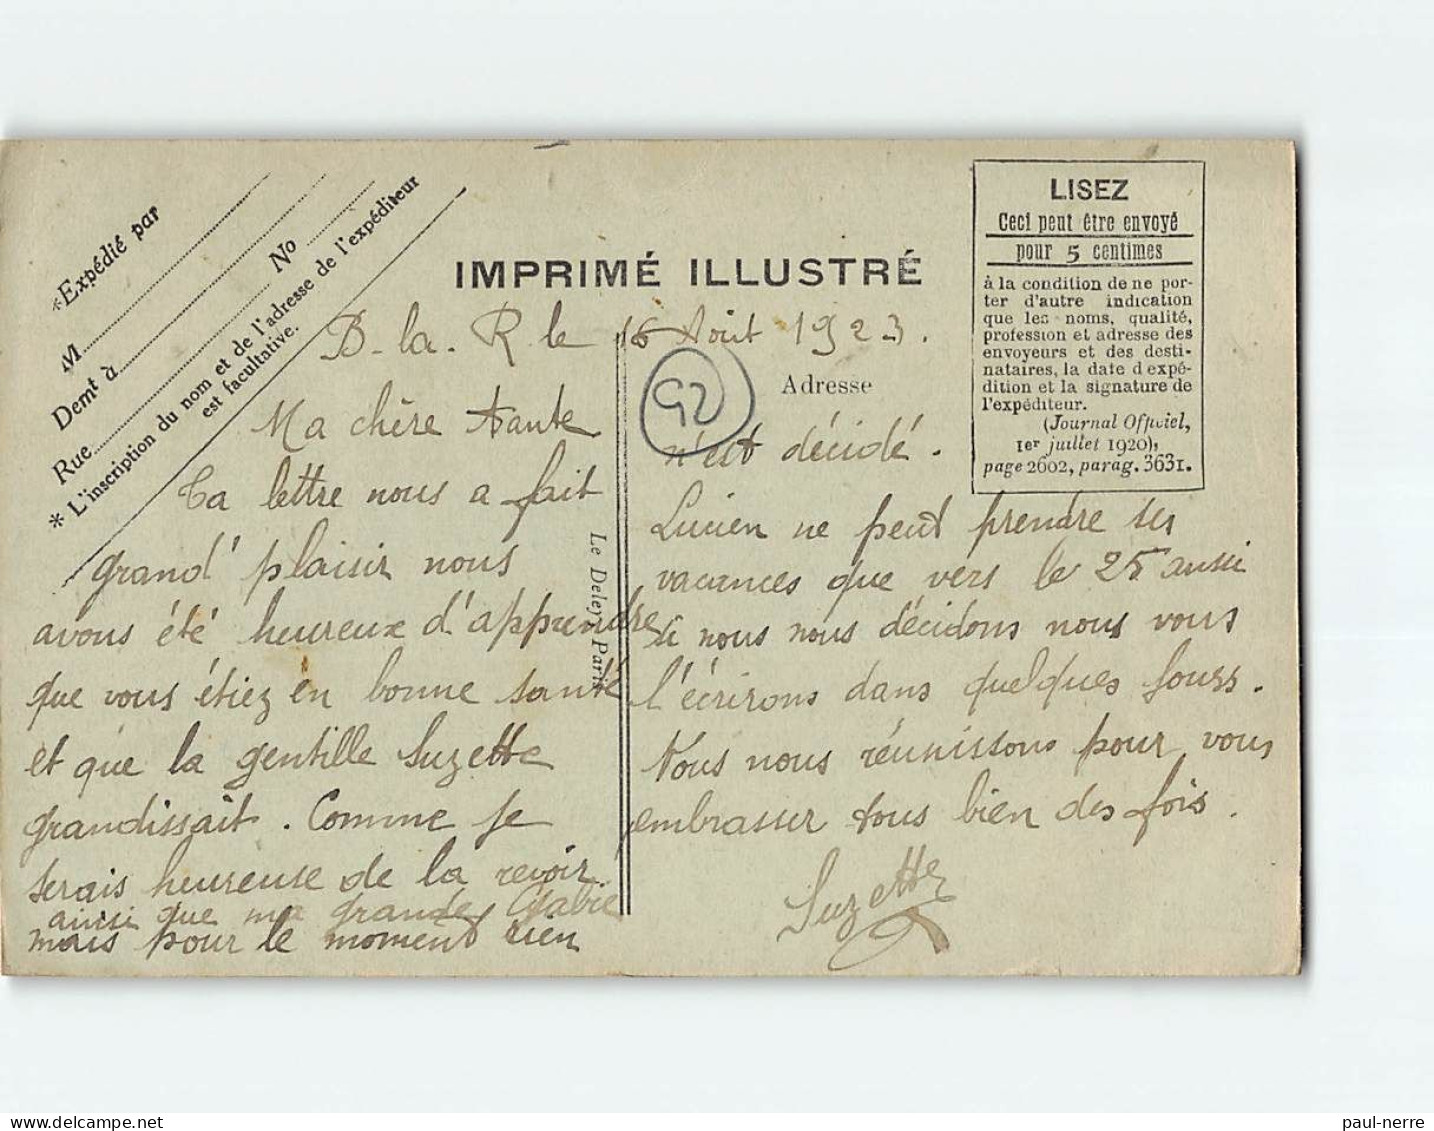 *Expédié par
M
Demt à
Rue No
* L'inscription du nom et de l'adresse de l'expéditeur
est facultative.
IMPRIMÉ ILLUSTRÉ
LISEZ
Ceci peut être envoyé
pour 5 centimes
à la condition de ne por-
ter d'autre indication
que les noms, qualité,
profession et adresse des
envoyeurs et des desti-
nataires, la date d'expé-
dition et la signature de
l'expéditeur.
(Journal Officiel,
1er juillet 1920),
page 2602, parag. 3631.
Adresse
Le Deley, Paris
92
B. la. R le 16 Août 1923.
Ma chère tante
Ta lettre nous a fait
grand plaisir nous
avons été heureux d'apprendre
que vous étiez en bonne santé
et que la gentille Suzette
grandissait. Comme je
serais heureuse de la revoir
ainsi que ma grande Gabie
mais pour le moment rien
n'est décidé.
Lucien ne peut prendre ses
vacances que vers le 25 aussi
si nous nous décidons nous vous
l'écrirons dans quelques jours.
Nous nous réunissons pour vous
embrasser tous bien des fois.
Suzette
paul-nerre